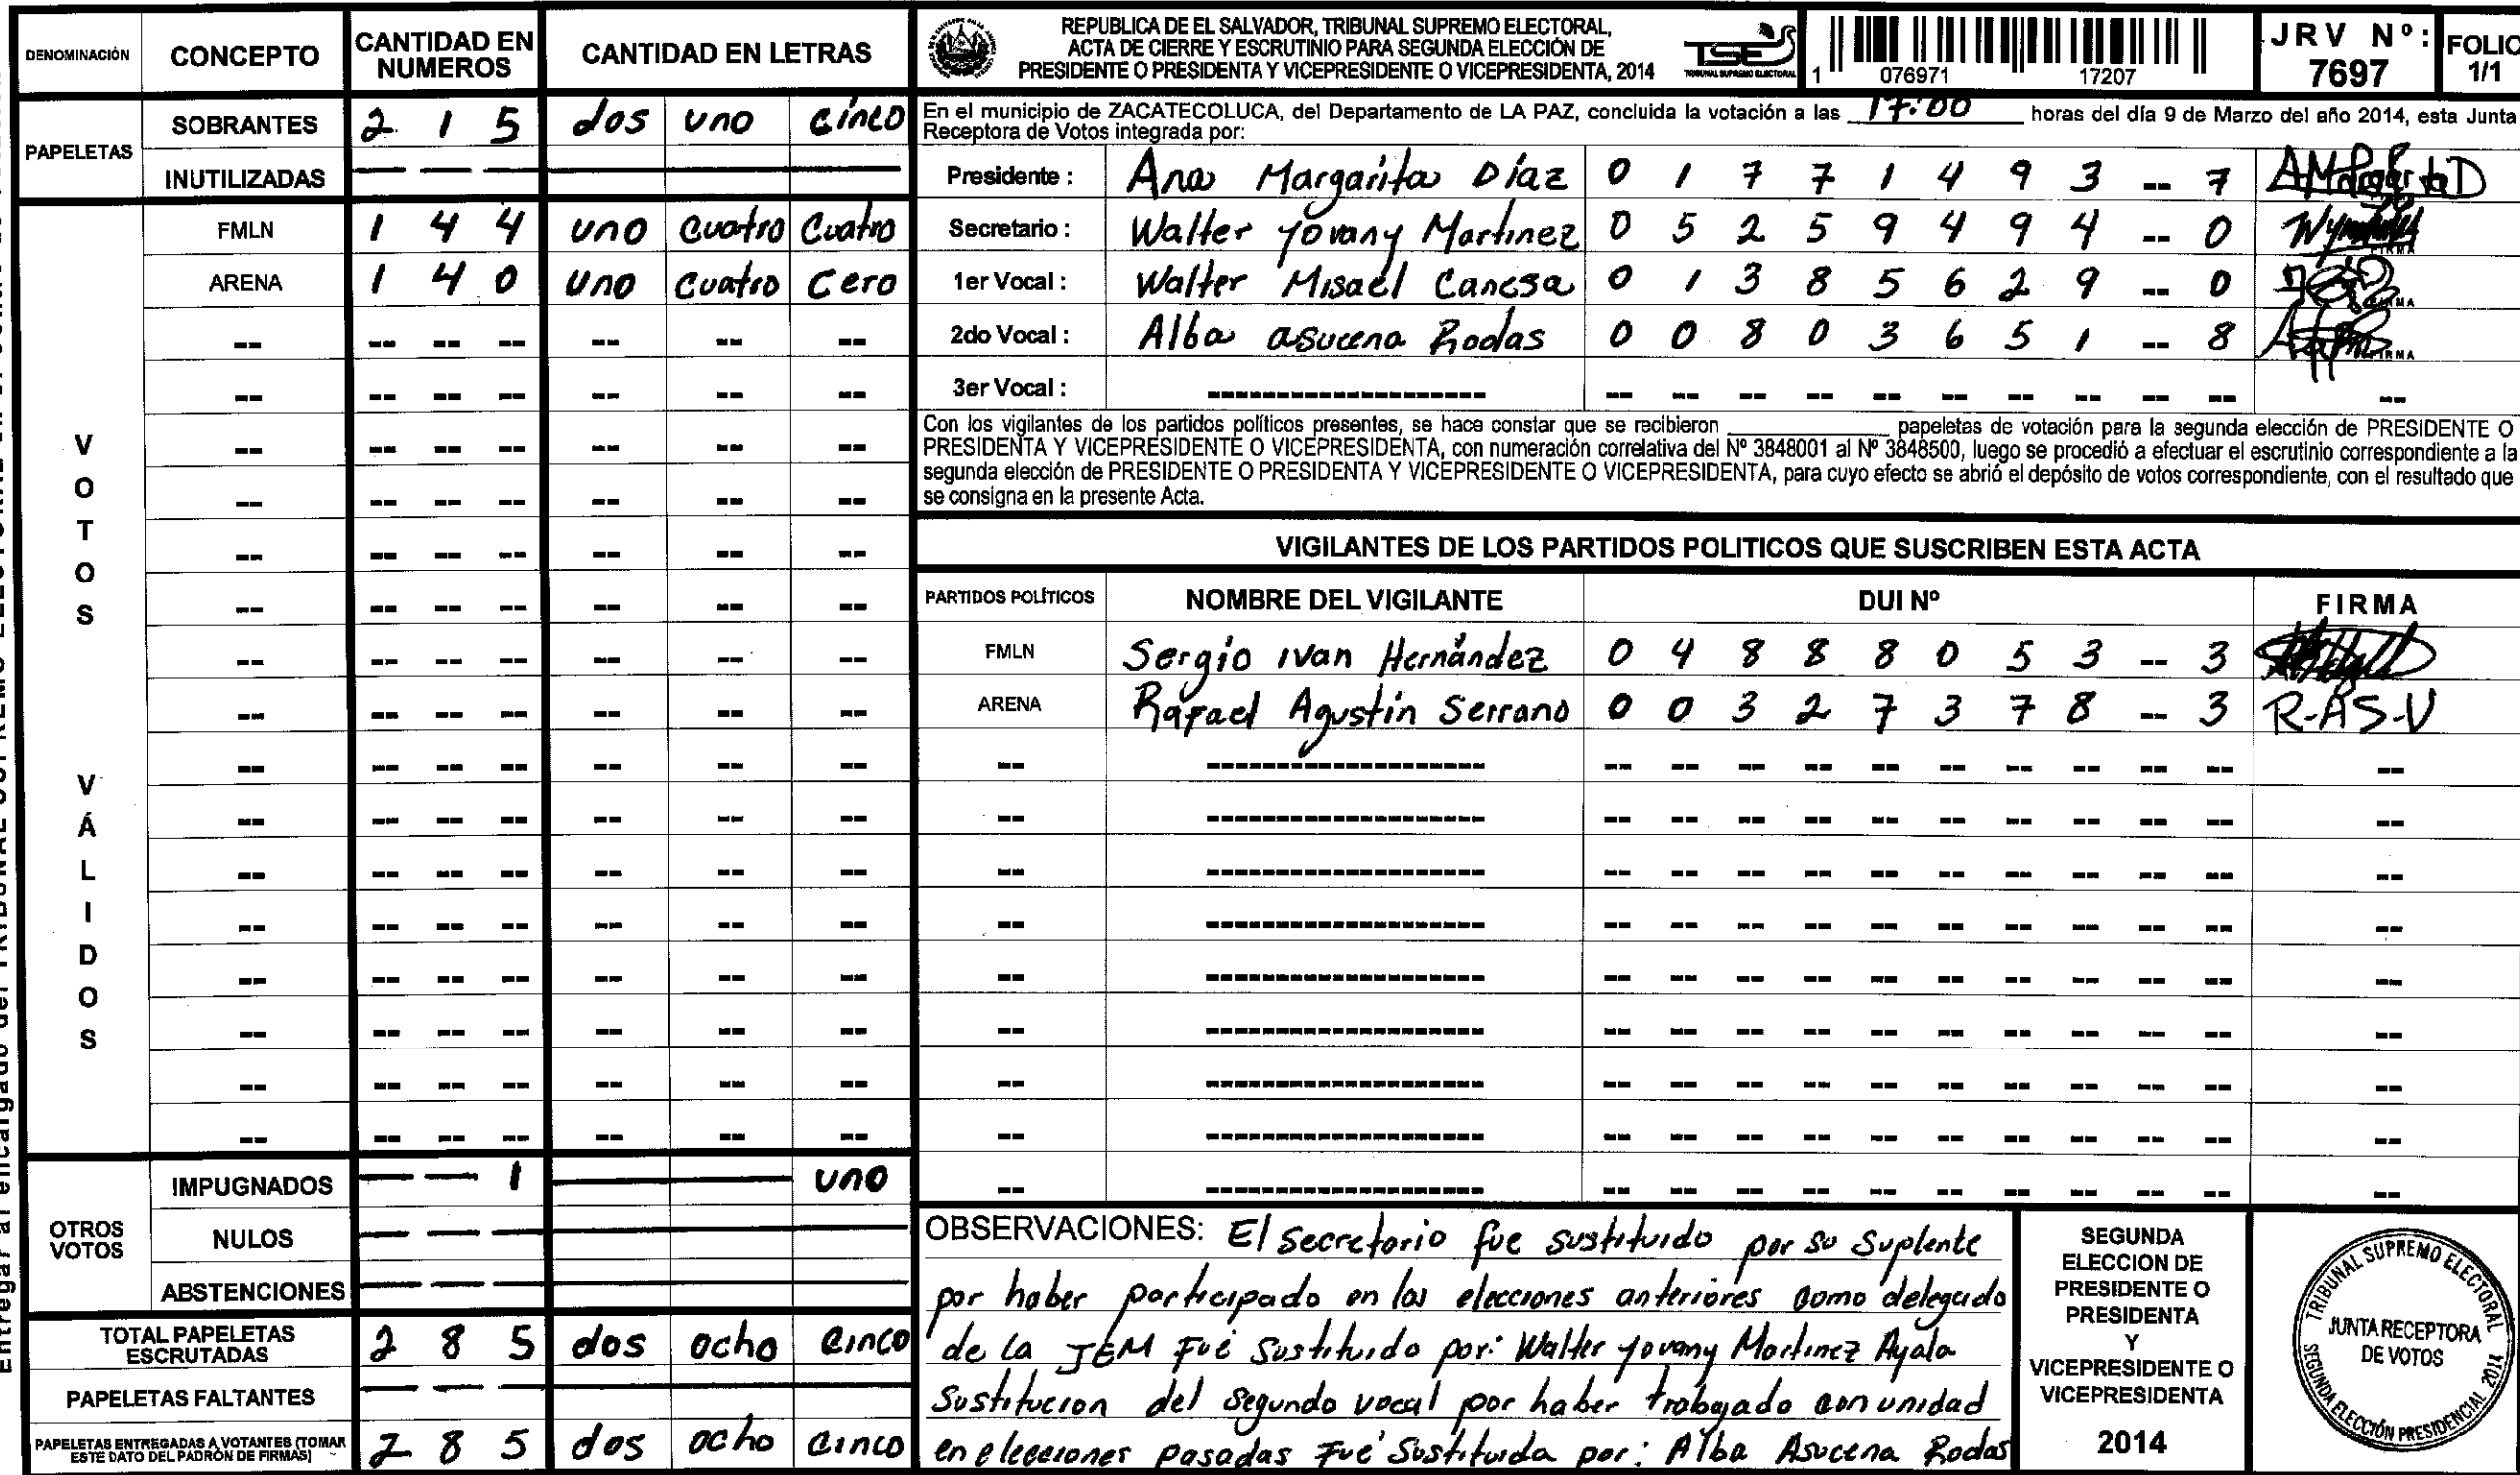 DENOMINACIÓN CONCEPTO CANTIDAD EN NUMEROS CANTIDAD EN LETRAS
PAPELETAS
SOBRANTES 2 1 5 dos uno cinco
INUTILIZADAS — — — ———
VOTOS VÁLIDOS
FMLN 1 4 4 uno cuatro Cuatro
ARENA 1 4 0 uno cuatro Cero
OTROS VOTOS
IMPUGNADOS — — 1 ——— uno
NULOS — — — ———
ABSTENCIONES — — — ———
TOTAL PAPELETAS ESCRUTADAS 2 8 5 dos ocho cinco
PAPELETAS FALTANTES — — — ———
PAPELETAS ENTREGADAS A VOTANTES (TOMAR ESTE DATO DEL PADRÓN DE FIRMAS) 2 8 5 dos ocho cinco
REPUBLICA DE EL SALVADOR, TRIBUNAL SUPREMO ELECTORAL,
ACTA DE CIERRE Y ESCRUTINIO PARA SEGUNDA ELECCIÓN DE
PRESIDENTE O PRESIDENTA Y VICEPRESIDENTE O VICEPRESIDENTA, 2014
TSE
TRIBUNAL SUPREMO ELECTORAL
1 076971 17207
JRV Nº: 7697
FOLIO 1/1
En el municipio de ZACATECOLUCA, del Departamento de LA PAZ, concluida la votación a las 17:00 horas del día 9 de Marzo del año 2014, esta Junta
Receptora de Votos integrada por:
Presidente : Ana Margarita Díaz 0 1 7 7 1 4 9 3 -- 7
Secretario : Walter Yovany Martinez 0 5 2 5 9 4 9 4 -- 0
1er Vocal : Walter Misael Canesa 0 1 3 8 5 6 2 9 -- 0
2do Vocal : Alba asucena Rodas 0 0 8 0 3 6 5 1 -- 8
3er Vocal : ------------------
Con los vigilantes de los partidos políticos presentes, se hace constar que se recibieron ________ papeletas de votación para la segunda elección de PRESIDENTE O
PRESIDENTA Y VICEPRESIDENTE O VICEPRESIDENTA, con numeración correlativa del Nº 3848001 al Nº 3848500, luego se procedió a efectuar el escrutinio correspondiente a la
segunda elección de PRESIDENTE O PRESIDENTA Y VICEPRESIDENTE O VICEPRESIDENTA, para cuyo efecto se abrió el depósito de votos correspondiente, con el resultado que
se consigna en la presente Acta.
VIGILANTES DE LOS PARTIDOS POLITICOS QUE SUSCRIBEN ESTA ACTA
PARTIDOS POLÍTICOS NOMBRE DEL VIGILANTE DUI Nº FIRMA
FMLN Sergio ivan Hernández 0 4 8 8 8 0 5 3 -- 3
ARENA Rafael Agustin Serrano 0 0 3 2 7 3 7 8 -- 3 R-AS-V
OBSERVACIONES: El Secretario fue sustituido por su Suplente
por haber participado en las elecciones anteriores como delegado
de la JEM Fué Sustituido por: Walter yovany Martinez Ayala
Sustitucion del segundo vocal por haber trabajado con unidad
en elecciones pasadas Fué Sustituida por: Alba Asucena Rodas
SEGUNDA
ELECCION DE
PRESIDENTE O
PRESIDENTA
Y
VICEPRESIDENTE O
VICEPRESIDENTA
2014
TRIBUNAL SUPREMO ELECTORAL
JUNTA RECEPTORA
DE VOTOS
SEGUNDA ELECCIÓN PRESIDENCIAL 2014